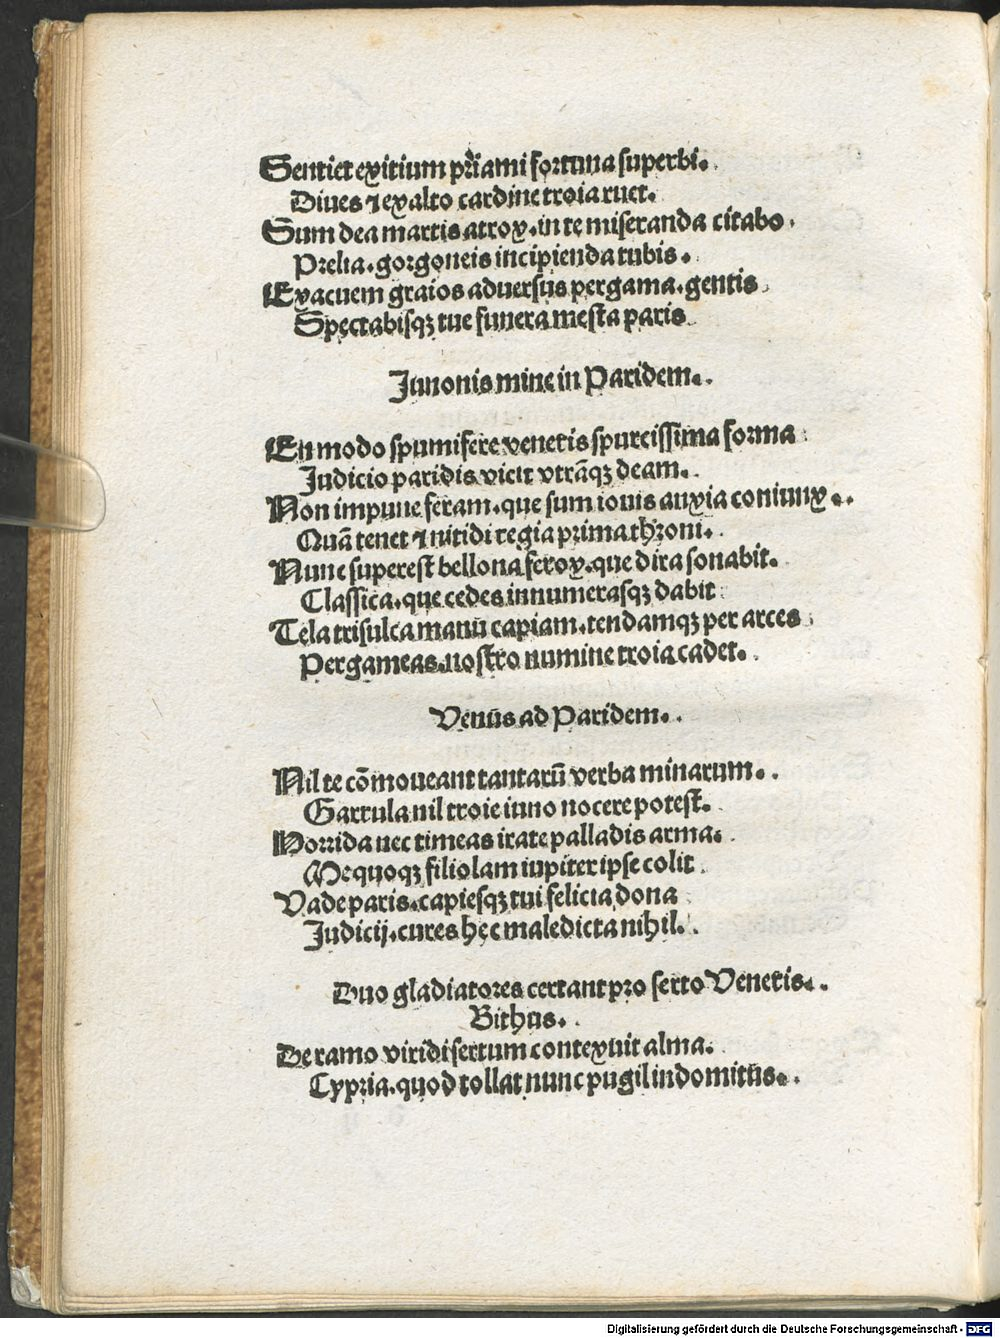 Sentiet exitium priami fortuna superbi.
Diues ⁊ exalto cardine troia ruet.
Sum dea martis atrox. in te miseranda citabo.
Prelia. gorgoneis incipienda tubis.
Exacuem graios aduersus pergama. gentis
Spectabisqꝫ tue funera mesta paris
Junonis mine in Paridem.
En modo spumifere venetis spurcissima forma
Judicio paridis vicit vtrāqꝫ deam.
Non impune feram. que sum iouis anxia coniunx.
Quā tenet ⁊ nitidi regia prima throni.
Nunc superest bellona ferox. que dira sonabit.
Classica. que cedes innumerasqꝫ dabit
Tela trisulca manū capiam. tendamqꝫ per arces
Pergameas. nostro numine troia cadet.
Venūs ad Paridem.
Nil te cōmoueant tantarū verba minarum.
Garrula nil troie iuno nocere potest.
Horrida nec timeas irate palladis arma.
Me quoqꝫ filiolam iupiter ipse colit
Vade paris. capiesqꝫ tui felicia dona
Judicij. cures hęc maledicta nihil.
Duo gladiatores certant pro serto Veneris.
Bithus.
De ramo viridi sertum contexuit alma.
Cypria. quod tollat nunc pugil indomitūs.
Digitalisierung gefördert durch die Deutsche Forschungsgemeinschaft - DFG